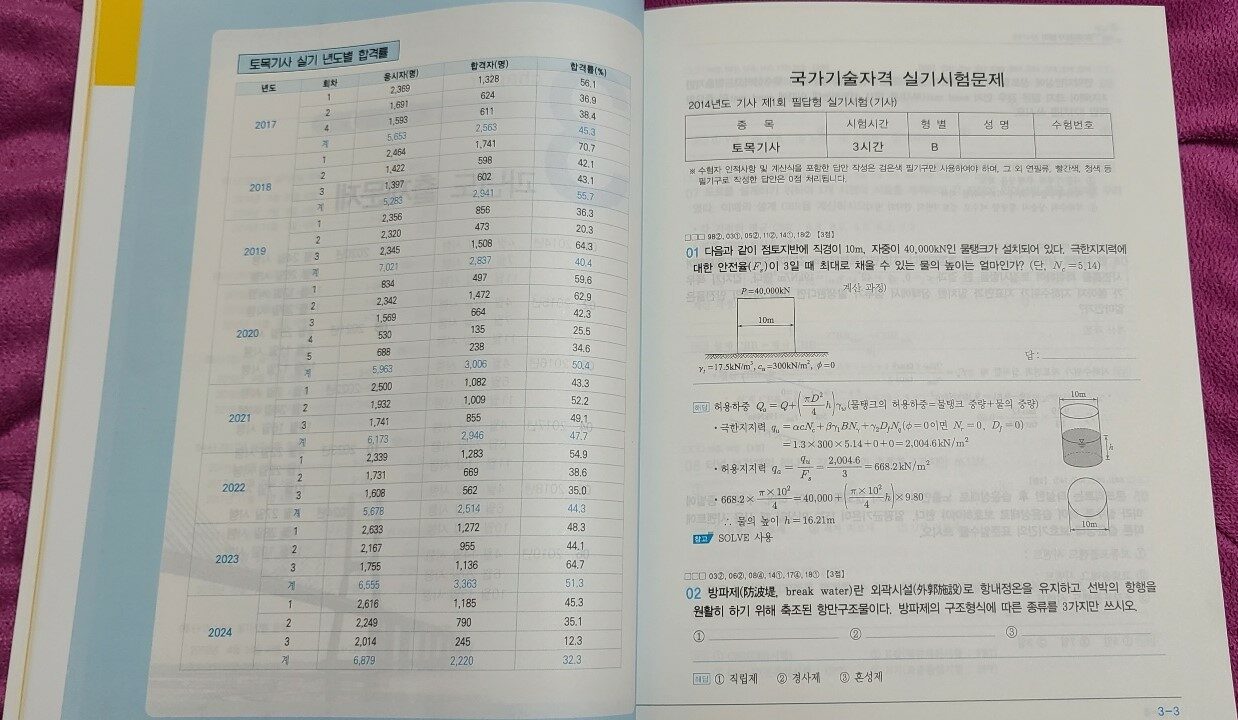 토목기사 실기 년도별 합격률
년도 회차 응시자(명) 합격자(명) 합격률(%)
2017 1 2,369 1,328 56.1
2 1,691 624 36.9
4 1,593 611 38.4
계 5,653 2,563 45.3
2018 1 2,464 1,741 70.7
2 1,422 598 42.1
3 1,397 602 43.1
계 5,283 2,941 55.7
2019 1 2,356 856 36.3
2 2,320 473 20.3
3 2,345 1,508 64.3
계 7,021 2,837 40.4
2020 1 834 497 59.6
2 2,342 1,472 62.9
3 1,569 664 42.3
4 530 135 25.5
5 688 238 34.6
계 5,963 3,006 50.4
2021 1 2,500 1,082 43.3
2 1,932 1,009 52.2
3 1,741 855 49.1
계 6,173 2,946 47.7
2022 1 2,339 1,283 54.9
2 1,731 669 38.6
3 1,608 562 35.0
계 5,678 2,514 44.3
2023 1 2,633 1,272 48.3
2 2,167 955 44.1
3 1,755 1,136 64.7
계 6,555 3,363 51.3
2024 1 2,616 1,185 45.3
2 2,249 790 35.1
3 2,014 245 12.3
계 6,879 2,220 32.3
국가기술자격 실기시험문제
2014년도 기사 제1회 필답형 실기시험(기사)
종 목 시험시간 형 별 성 명 수험번호
토목기사 3시간 B
※ 수험자 인적사항 및 계산식을 포함한 답안 작성은 검은색 필기구만 사용하여야 하며, 그 외 연필류, 빨간색, 청색 등
필기구로 작성한 답안은 0점 처리됩니다.
□□□ 98②, 03①, 05②, 11②, 14①, 18② 【3점】
01 다음과 같이 점토지반에 직경이 10m, 자중이 40,000kN인 물탱크가 설치되어 있다. 극한지지력에
대한 안전율(Fs)이 3일 때 최대로 채울 수 있는 물의 높이는 얼마인가? (단, Nc=5.14)
계산 과정)
P=40,000kN
10m
답 :
γt=17.5kN/m², cu=300kN/m², φ=0
해답 허용하중 Qa=Q+(πD²/4 h)γw(물탱크의 허용하중=물탱크 중량+물의 중량)
10m
h
물
10m
• 극한지지력 qu=αcNc+βγ1BNr+γ2DfNq(φ=0이면 Nr=0, Df=0)
=1.3×300×5.14+0+0=2,004.6kN/m²
• 허용지지력 qa=qu/Fs=2,004.6/3=668.2kN/m²
• 668.2×π×10²/4=40,000+(π×10²/4 h)×9.80
∴ 물의 높이 h=16.21m
참고 SOLVE 사용
□□□ 03②, 06②, 08④, 14①, 17④, 18① 【3점】
02 방파제(防波堤, break water)란 외곽시설(外郭施設)로 항내정온을 유지하고 선박의 항행을
원활히 하기 위해 축조된 항만구조물이다. 방파제의 구조형식에 따른 종류를 3가지만 쓰시오.
① ② ③
해답 ① 직립제 ② 경사제 ③ 혼성제
3-3